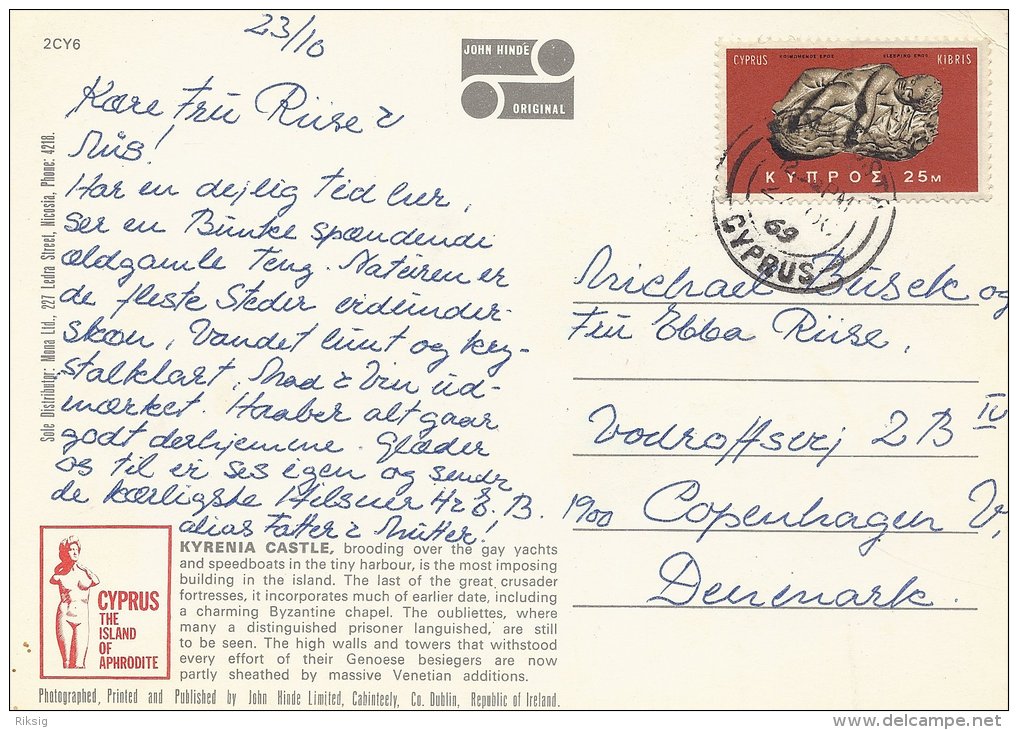 2CY6
23/10
JOHN HINDE
ORIGINAL
CYPRUS ΚΟΙΜΩΜΕΝΟΣ ΕΡΩΣ SLEEPING EROS KIBRIS
ΚΥΠΡΟΣ 25M
69
CYPRUS
Kære Frú Riise &
Har en dejlig tid her,
ser en Búnke spændende
ældgamle Teng. Natúren er
de fleste Steder vidúnder-
skøn, Vandet lúnt og kry-
stalklart, Mad & Vin úd-
mærket. Haaber alt gaar
godt derhjemme. Glæder
os til at ses igen og sender
de kærligste Hilsner H & E. B.
alias Fatter & Mútter!
Michael Búsck og
Frú Ebba Riise,
Vodroffsvej 2B IV
1900 Copenhagen V,
Denmark.
Sole Distributor: Mona Ltd., 227 Ledra Street, Nicosia, Phone: 4218.
CYPRUS
THE
ISLAND
OF
APHRODITE
KYRENIA CASTLE, brooding over the gay yachts
and speedboats in the tiny harbour, is the most imposing
building in the island. The last of the great crusader
fortresses, it incorporates much of earlier date, including
a charming Byzantine chapel. The oubliettes, where
many a distinguished prisoner languished, are still
to be seen. The high walls and towers that withstood
every effort of their Genoese besiegers are now
partly sheathed by massive Venetian additions.
Photographed, Printed and Published by John Hinde Limited, Cabinteely, Co. Dublin, Republic of Ireland.
Riksig
delcampe.net